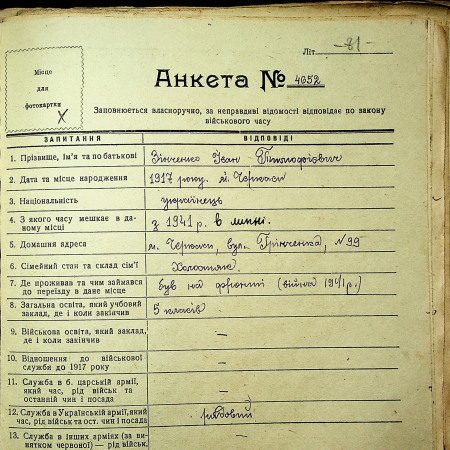 Літ. -81-
Місце
для
фотокартки
Анкета № 4652
Заповнюється власноручно, за неправдиві відомості відповідає по закону
військового часу
ЗАПИТАННЯ ВІДПОВІДІ
1. Прізвище, ім'я та по батькові Зінченко Іван Тимофієвич
2. Дата та місце народження 1917 року. м. Черкаси
3. Національність українець
4. З якого часу мешкає в да-
ному місці з 1941 р. в липні.
5. Домашня адреса м. Черкаси, вул. Грінченка, №99
6. Сімейний стан та склад сім'ї Холостяк.
7. Де проживав та чим займався
до переїзду в дане місце був на фронті (війна 1941 р.)
8. Загальна освіта, який учбовий
заклад, де і коли закінчив 5 класів
9. Військова освіта, який заклад,
де і коли закінчив —
10. Відношення до військової
служби до 1917 року —
11. Служба в б. царській армії,
який час, рід військ та
останній чин і посада —
12. Служба в Українській армії, який
час, рід військ та ост. чин і посада рядовий
13. Служба в інших арміях (за ви-
нятком червоної) — рід військ, —